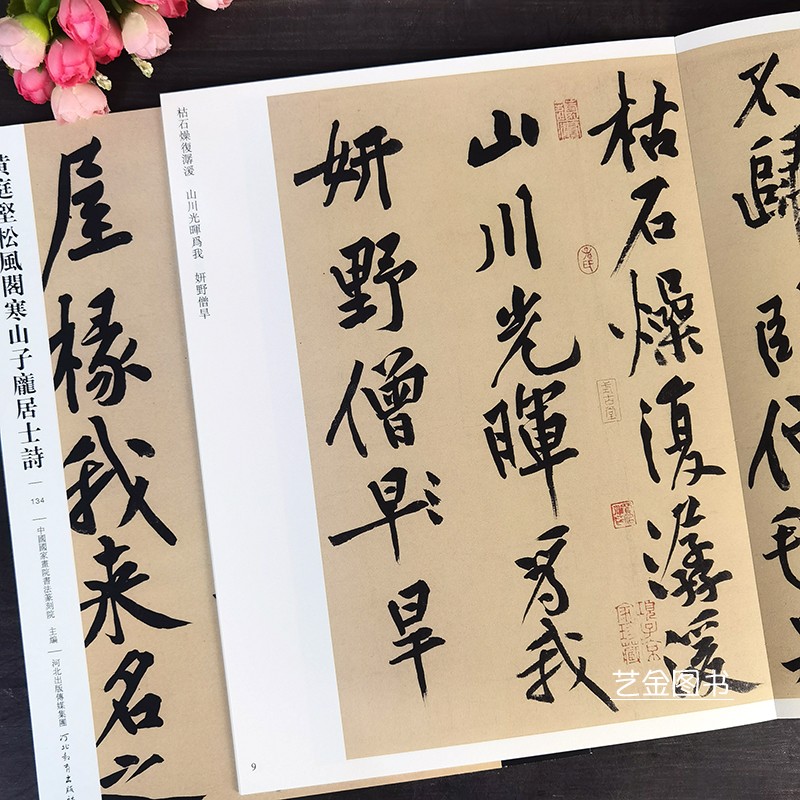 不歸
枯石燥復潺湲
山川光暉爲我
妍野僧早旱
項子京家珍藏
枯石燥復潺湲 山川光暉爲我 妍野僧旱
9
屋椽我来名之
黃庭堅松風閣寒山子龐居士詩
134
中國國家畫院書法篆刻院 主編
河北出版傳媒集團 河北教育出版社
艺金图书